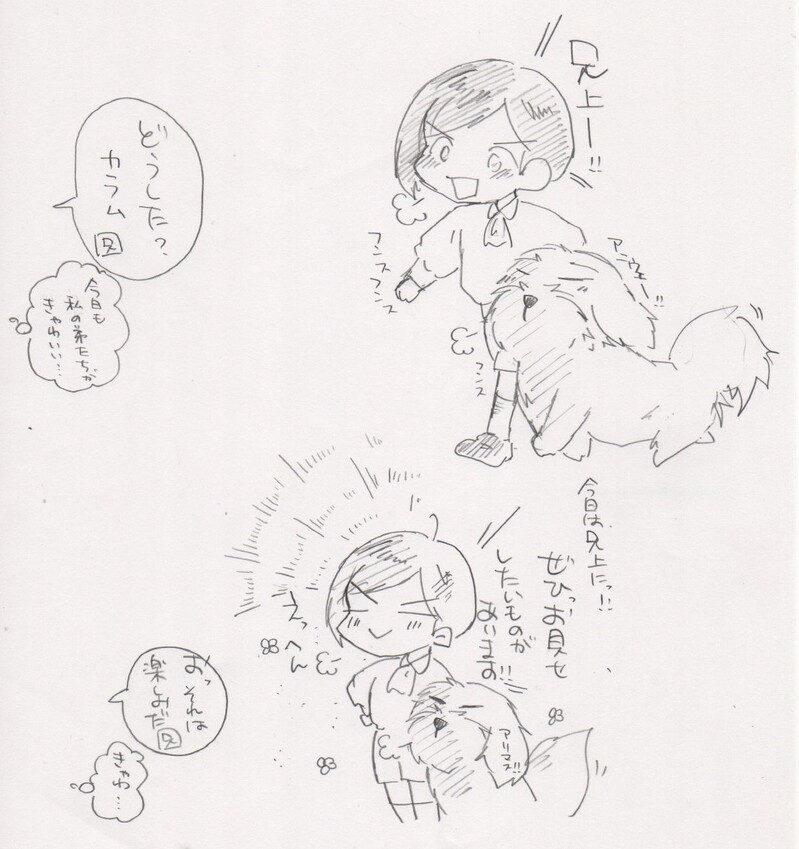 兄上ー!!
アニウエー!!
フンスフンス
フンス
どうした?
カラム
兄
今日も
私の弟たちが
きゃわいい…
今日は、兄上にっ!!
ぜひっお見せ
したいものが
あります!!
アリマス!!
えっへん
おっそれは
楽しみだ
兄
きゃわ…